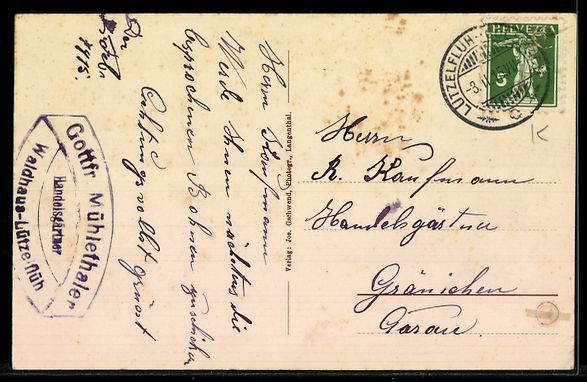 Den
1915
Herrn Kaufmann
Werde Ihnen nächstens die
besprochenen Bohnen zuschicken
Achtungsvollst grüsst
Gottfr. Mühlethaler
Handelsgärtner
Waldhaus-Lützelflüh
Verlag: Jos. Gschwend, Photogr., Langenthal.
HELVETIA
5
LÜTZELFLÜH
Herrn
R. Kaufmann
Handelsgärtner
Gränichen
Aarau
K